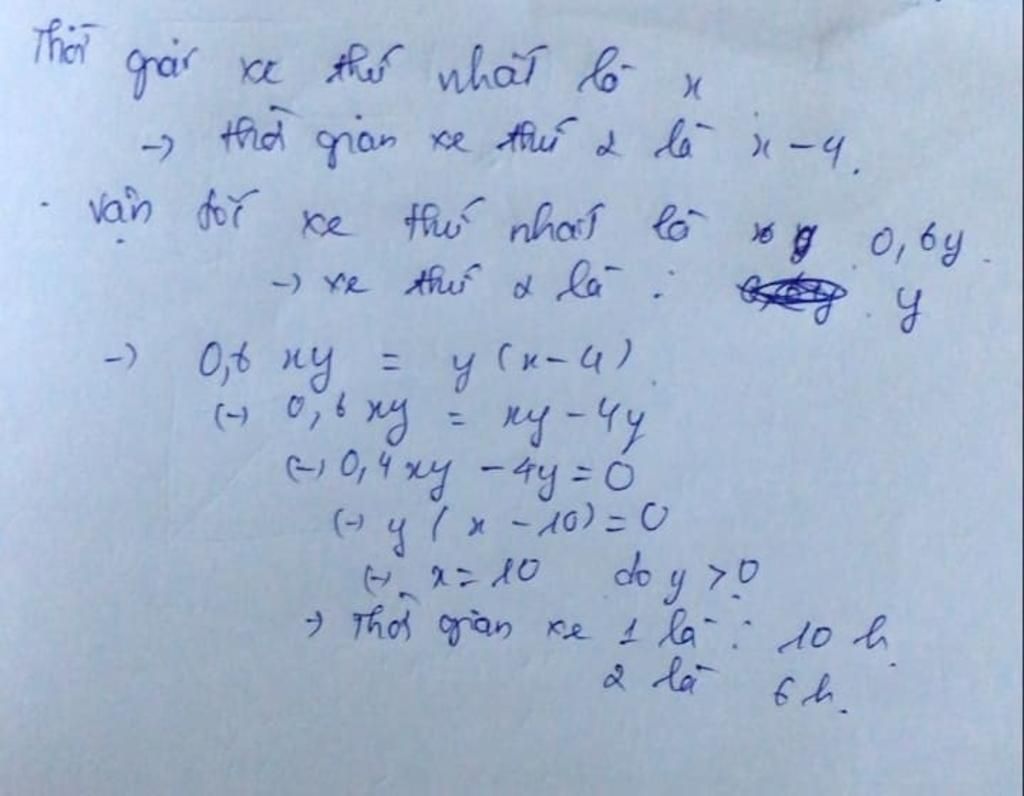 Thời gian xe thứ nhất là x
→ thời gian xe thứ 2 là x - 4.
. Vận tốc xe thứ nhất là 0,6y.
→ xe thứ 2 là : y
→ 0,6 xy = y (x - 4)
(→ 0,6 xy = xy - 4y
(→ 0,4 xy - 4y = 0
(→ y ( x - 10) = 0
(→ x = 10 do y > 0
→ Thời gian xe 1 là : 10 h.
2 là 6 h.